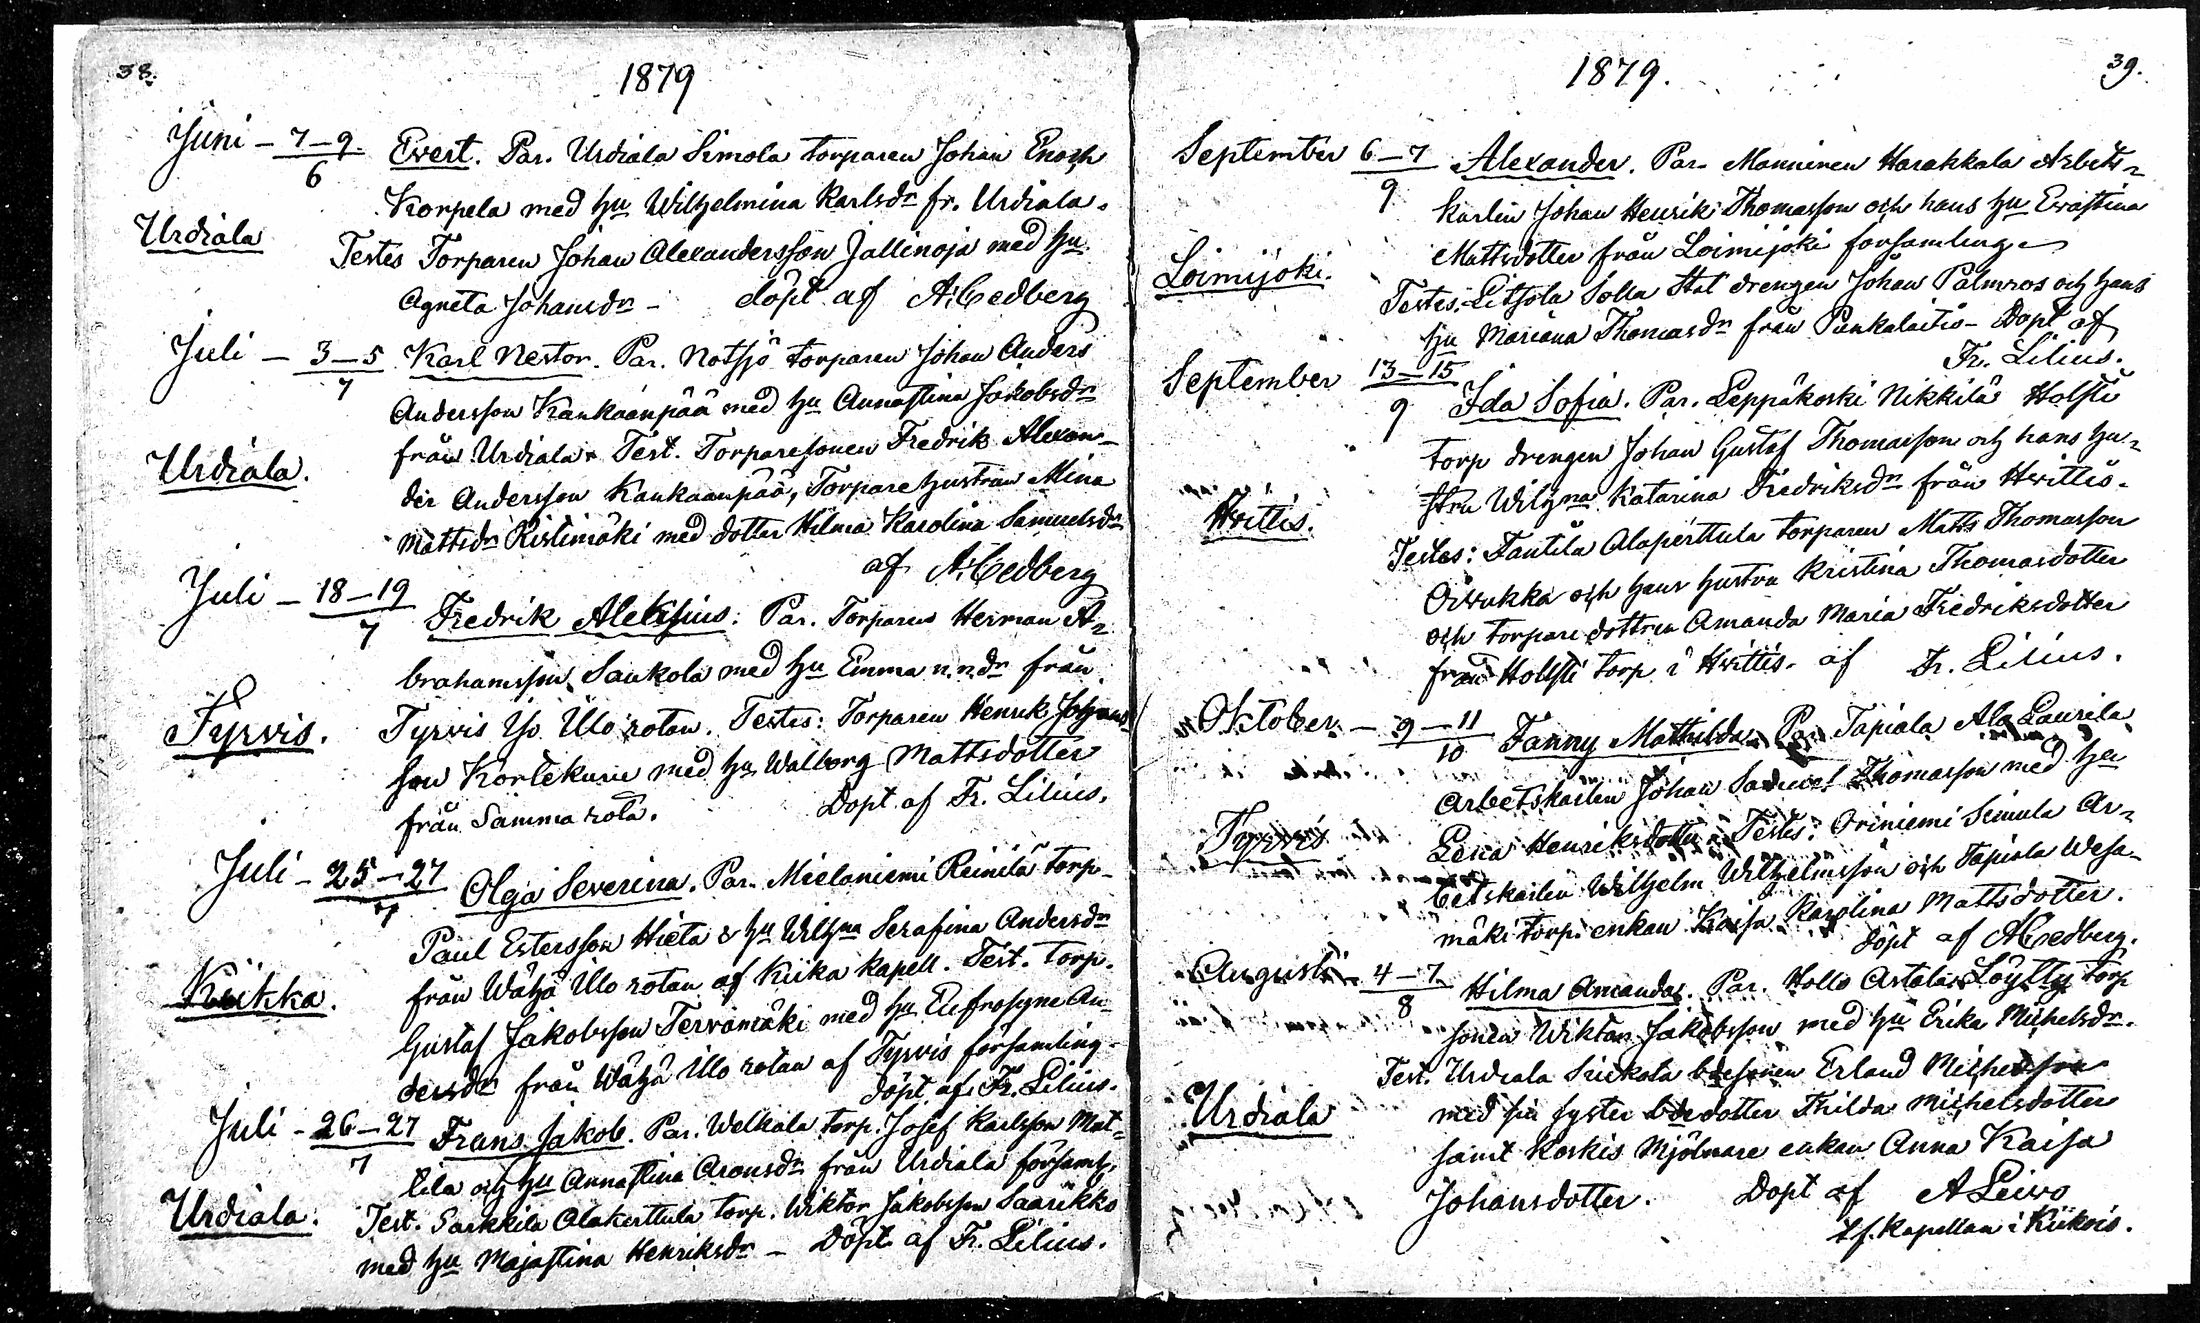 38.
1879
Juni - 7-9. Evert. Par. Urdiala Simola torparen Johan Enoch
6
Korpela med hu Wilhelmina Karlsdr fr. Urdiala.
Urdiala
Testes Torparen Johan Alexandersson Jallinoja med hu
Agneta Johansdr - döpt af A. Cedberg
Juli - 3-5 Karl Nestor. Par. Notsjö torparen Johan Anders
7
Andersson Kankaanpää med hu Annastina Jakobsdr
från Urdiala. Test. Torparesonen Fredrik Alexan-
Urdiala.
der Andersson Kankaanpää, Torpare hustrun Mina
Mattsdr Ristimäki med dotter Hilma Karolina Samuelsdr
af A. Cedberg
Juli - 18-19
7
Fredrik Aleksius: Par. Torparen Herman A-
brahamsson Saukola med hu Emma n.n.dr från
Tyrvis.
Tyrvis Yli Ulo rotan. Testes: Torparen Henrik Johans
son Kortekuru med hu Walborg Mattsdotter
från Samma rota. Döpt af Fr. Lilius.
Juli - 25-27
7
Olga Severina. Par. Mielaniemi Reinilä torp-
Paul Estersson Hieta & hu Wilhna Serafina Andersdr
från Wähä Ulo rotan af Kiika kapell. Test. torp.
Kiikka.
Gustaf Jakobsson Tervamäki med hu Eufrosyne An-
dersdr från Wähä Ulo rotan af Tyrvis församling-
döpt af Fr. Lilius.
Juli - 26-27
7
Frans Jakob. Par. Welkala torp. Josef Karlsson Mat-
tila och hu Annastina Aronsdr från Urdiala församl.
Urdiala.
Test. Sarkkila Alakerttula torp. Wiktor Jakobsson Saarikko
med hu Majastina Henriksdr - Döpt af Fr. Lilius.
1879.
39.
September 6-7
9
Alexander. Par. Manninen Harakkala Arbets-
karlen Johan Henrik Thomasson och hans hu Evastina
Mattsdotter från Loimijoki forsamling.
Loimijoki.
Testes. Litsola Solla Stal drengen Johan Palmros och hans
hu Mariana Thomasdr från Punkalaitio - Döpt af
Fr. Lilius.
September 13-15
9
Ida Sofia. Par. Leppäkoski Nikkilä Holsti
torp drengen Johan Gustaf Thomasson och hans hu-
stru Wilhna Katarina Fredriksdr från Hvittis.
Hvittis.
Testes: Fantila Alaperttula torparen Matts Thomasson
och hans hustru Kristina Thomasdotter
och torpare dottren Amanda Maria Fredriksdotter
från Hollsti torp i Hvittis. af Fr. Lilius.
Oktober - 9-11
10
Fanny Mathilda. Par. Tapiala Ala Laurila
arbetskarlen Johan Samuel Thomasson med hu
Tyrvis
Lena Henriksdotter. Testes: Oriniemi Simula Ar-
betskarlen Wilhelm Wilhelmsson och Tapiala Wesa-
mäki torp. enkan Kaisa Karolina Mattsdotter.
döpt af A Cedberg.
Augusti - 4-7
8
Hilma Amanda. Par. Hollo Artala Löytty torp
sonen Wiktor Jakobsson med hu Erika Michelsdr.
Test. Urdiala bdesonen Erland Michelsson
Urdiala
med sin syster bdedotter Thilda Michelsdotter
samt Koskis Mjölnare enkan Anna Kaisa
Johansdotter. Döpt af A Leivo
t.f. kapellan i Kiikois.